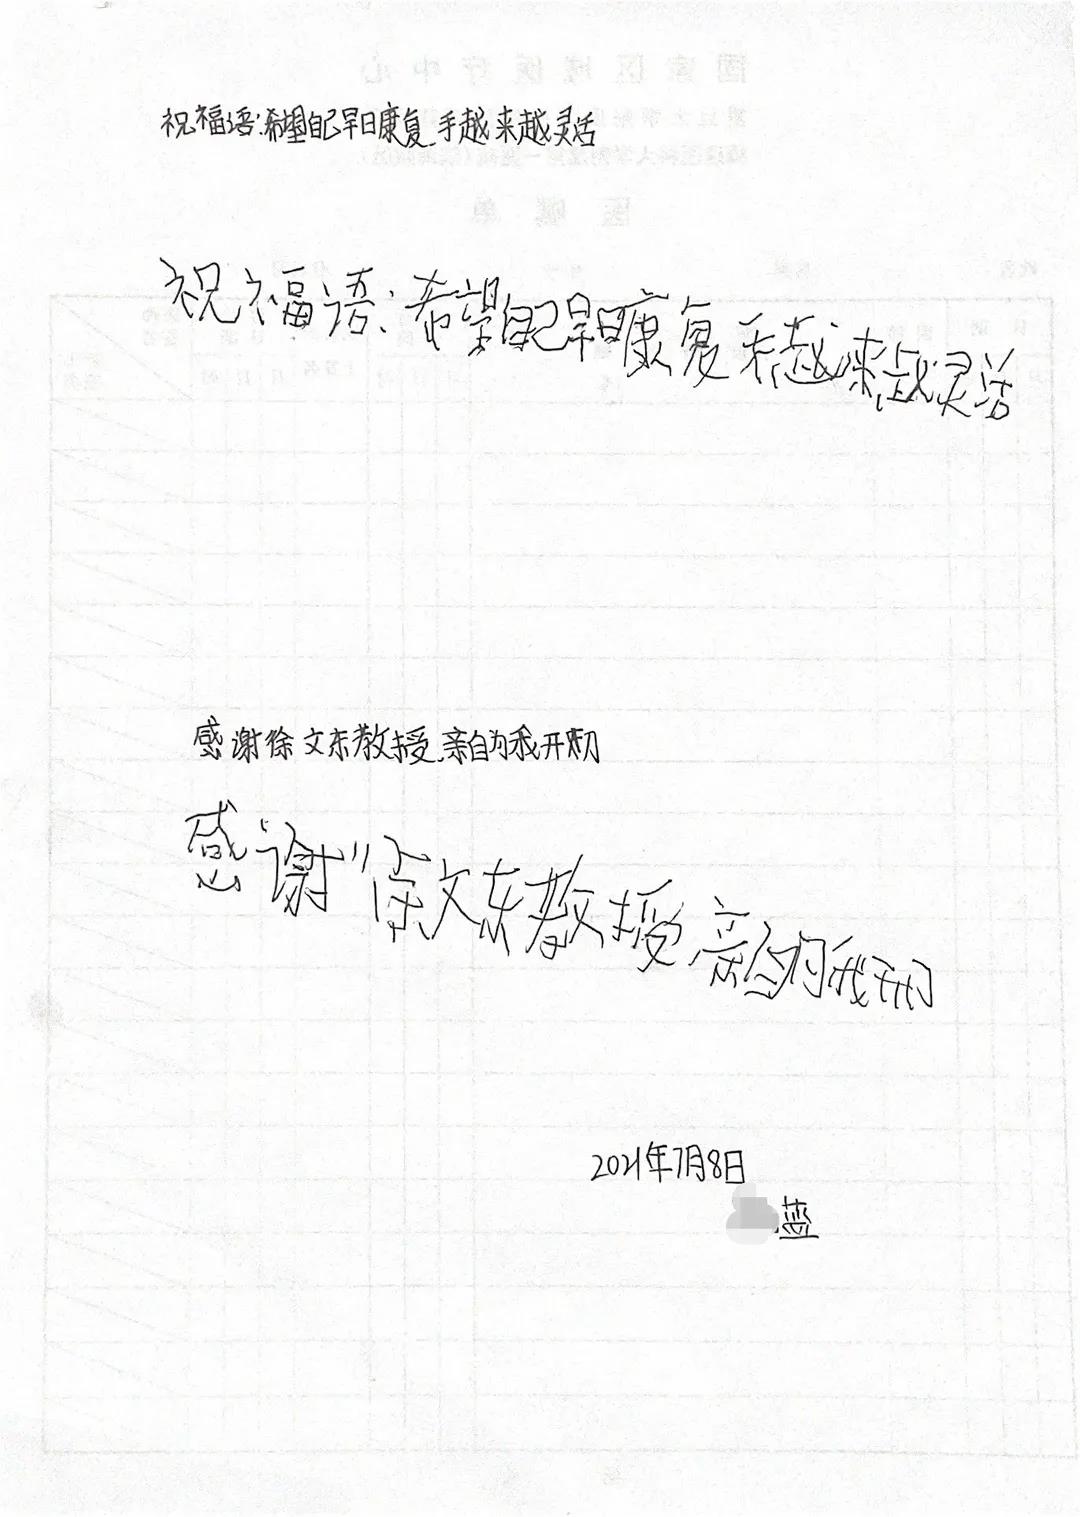 國家区域医疗中心
医嘱单
祝福语:希望自己早日康复.手越来越灵活
祝福语:希望自己早日康复 手越来越灵活
感谢徐文东教授.亲自为我开刀
感谢徐文东教授.亲自为我开刀
2021年7月8日
蓝